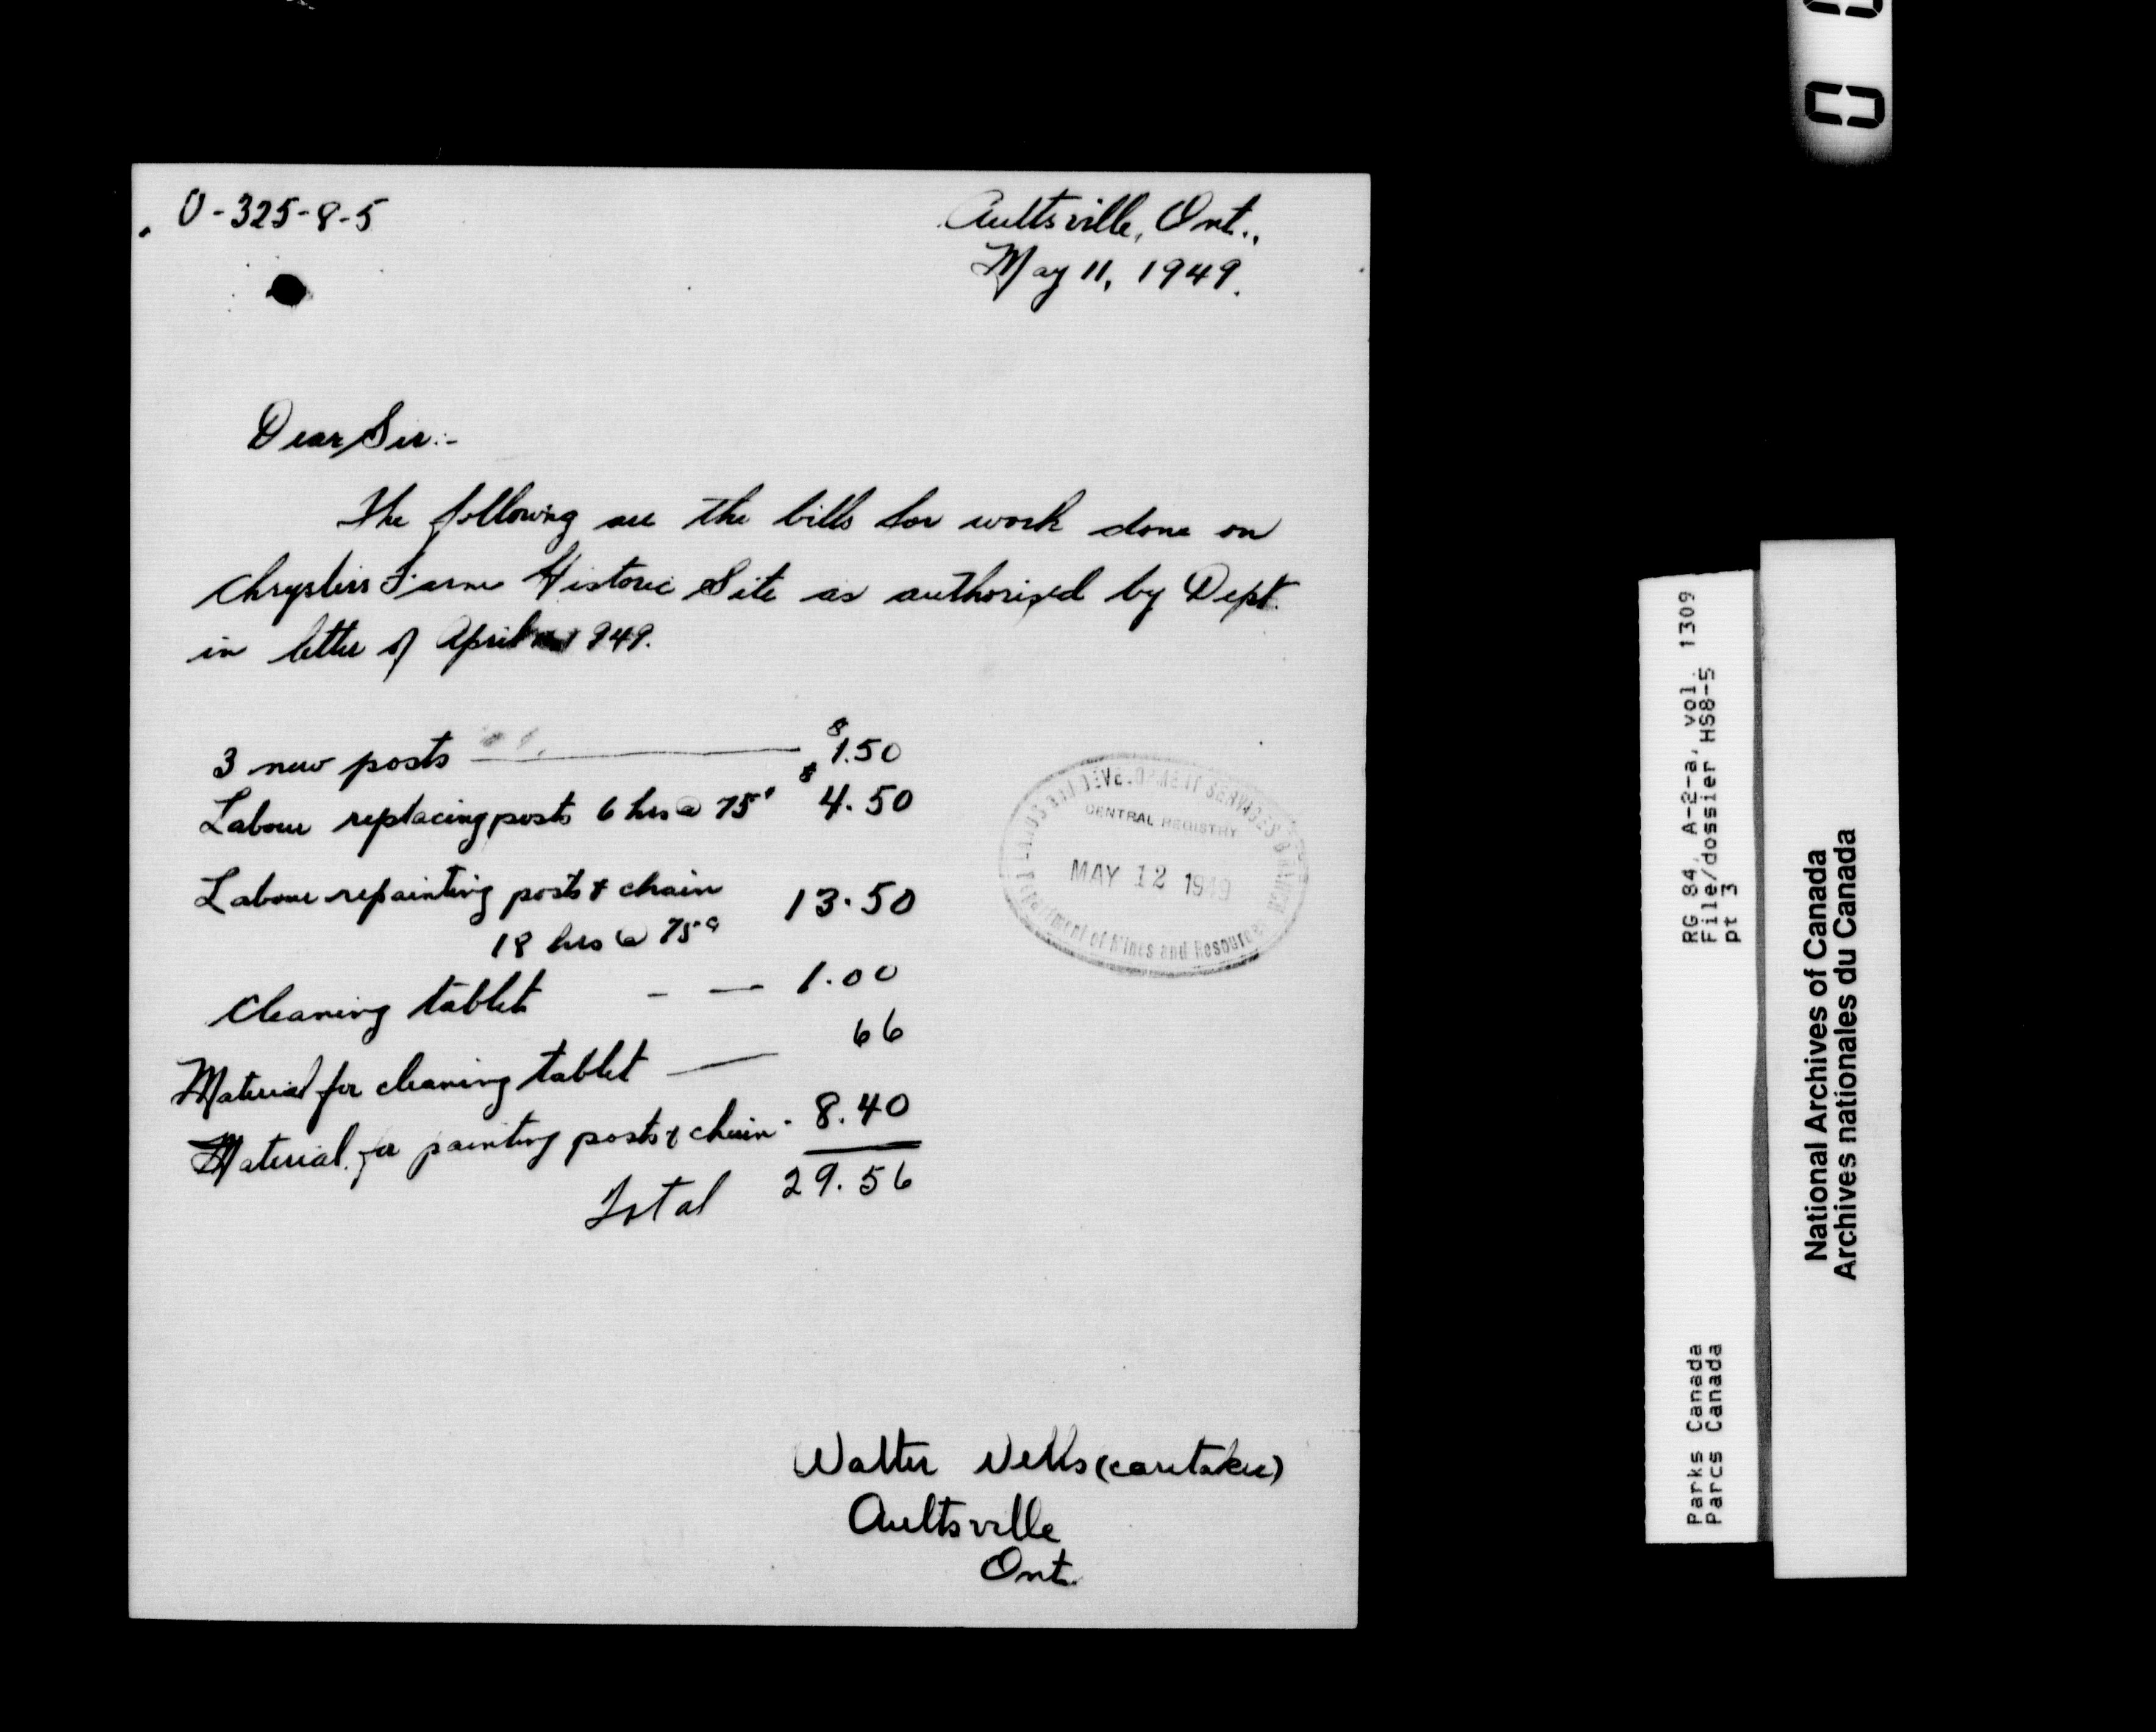 O-325-8-5
Aultsville, Ont.,
May 11, 1949.
Dear Sir:-
The following are the bills for work done on
Chryslers Farm Historic Site as authorized by Dept.
in letter of April 1949.
3 new posts — $1.50
Labour replacing posts 6 hrs @ 75¢ $4.50
Labour repainting posts & chain 13.50
18 hrs @ 75¢
Cleaning tablet - — 1.00
Material for cleaning tablet — 66
Material for painting posts & chain - 8.40
Total 29.56
LANDS and DEVELOPMENT SERVICES BRANCH
CENTRAL REGISTRY
MAY 12 1949
Department of Mines and Resources
Walter Wells (caretaker)
Aultsville
Ont.
RG 84, A-2-a, vol. 1309
File/dossier HS8-5
pt 3
Parks Canada
Parcs Canada
National Archives of Canada
Archives nationales du Canada